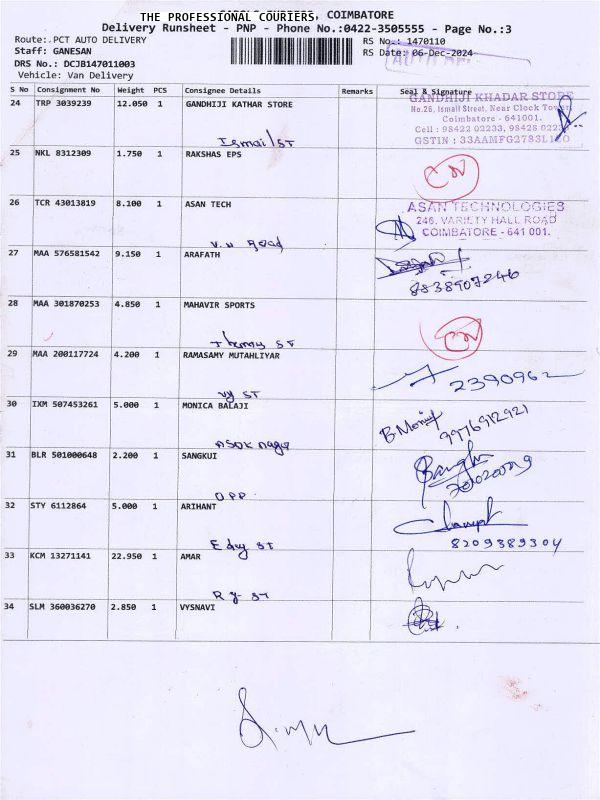 THE PROFESSIONAL COURIERS, COIMBATORE
Delivery Runsheet - PNP - Phone No.:0422-3505555 - Page No.:3
Route: PCT AUTO DELIVERY
RS No.: 1470110
Staff: GANESAN
RS Date: 06-Dec-2024
DRS No.: DCJB147011003
Vehicle: Van Delivery
S No Consignment No Weight PCS Consignee Details Remarks Seal & Signature
24 TRP 3039239 12.050 1 GANDHIJI KATHAR STORE
GANDHIJI KHADAR STORE
No.26, Ismail Street, Near Clock Tower
Coimbatore - 641001.
Cell : 98422 02233, 98428
GSTIN :
Ismail ST
25 NKL 8312309 1.750 1 RAKSHAS EPS
26 TCR 43013819 8.100 1 ASAN TECH
ASAN TECHNOLOGIES
246, VARIETY HALL ROAD
COIMBATORE - 641 001.
V.H Road
27 MAA 576581542 9.150 1 ARAFATH
8838907246
28 MAA 301870253 4.850 1 MAHAVIR SPORTS
ST
29 MAA 200117724 4.200 1 RAMASAMY MUTAHLIYAR
2390962
ST
30 IXM 507453261 5.000 1 MONICA BALAJI
9976912921
31 BLR 501000648 2.200 1 SANGKUI
OPP
32 STY 6112864 5.000 1 ARIHANT
8209389304
ST
33 KCM 13271141 22.950 1 AMAR
ST
34 SLM 360036270 2.850 1 VYSNAVI